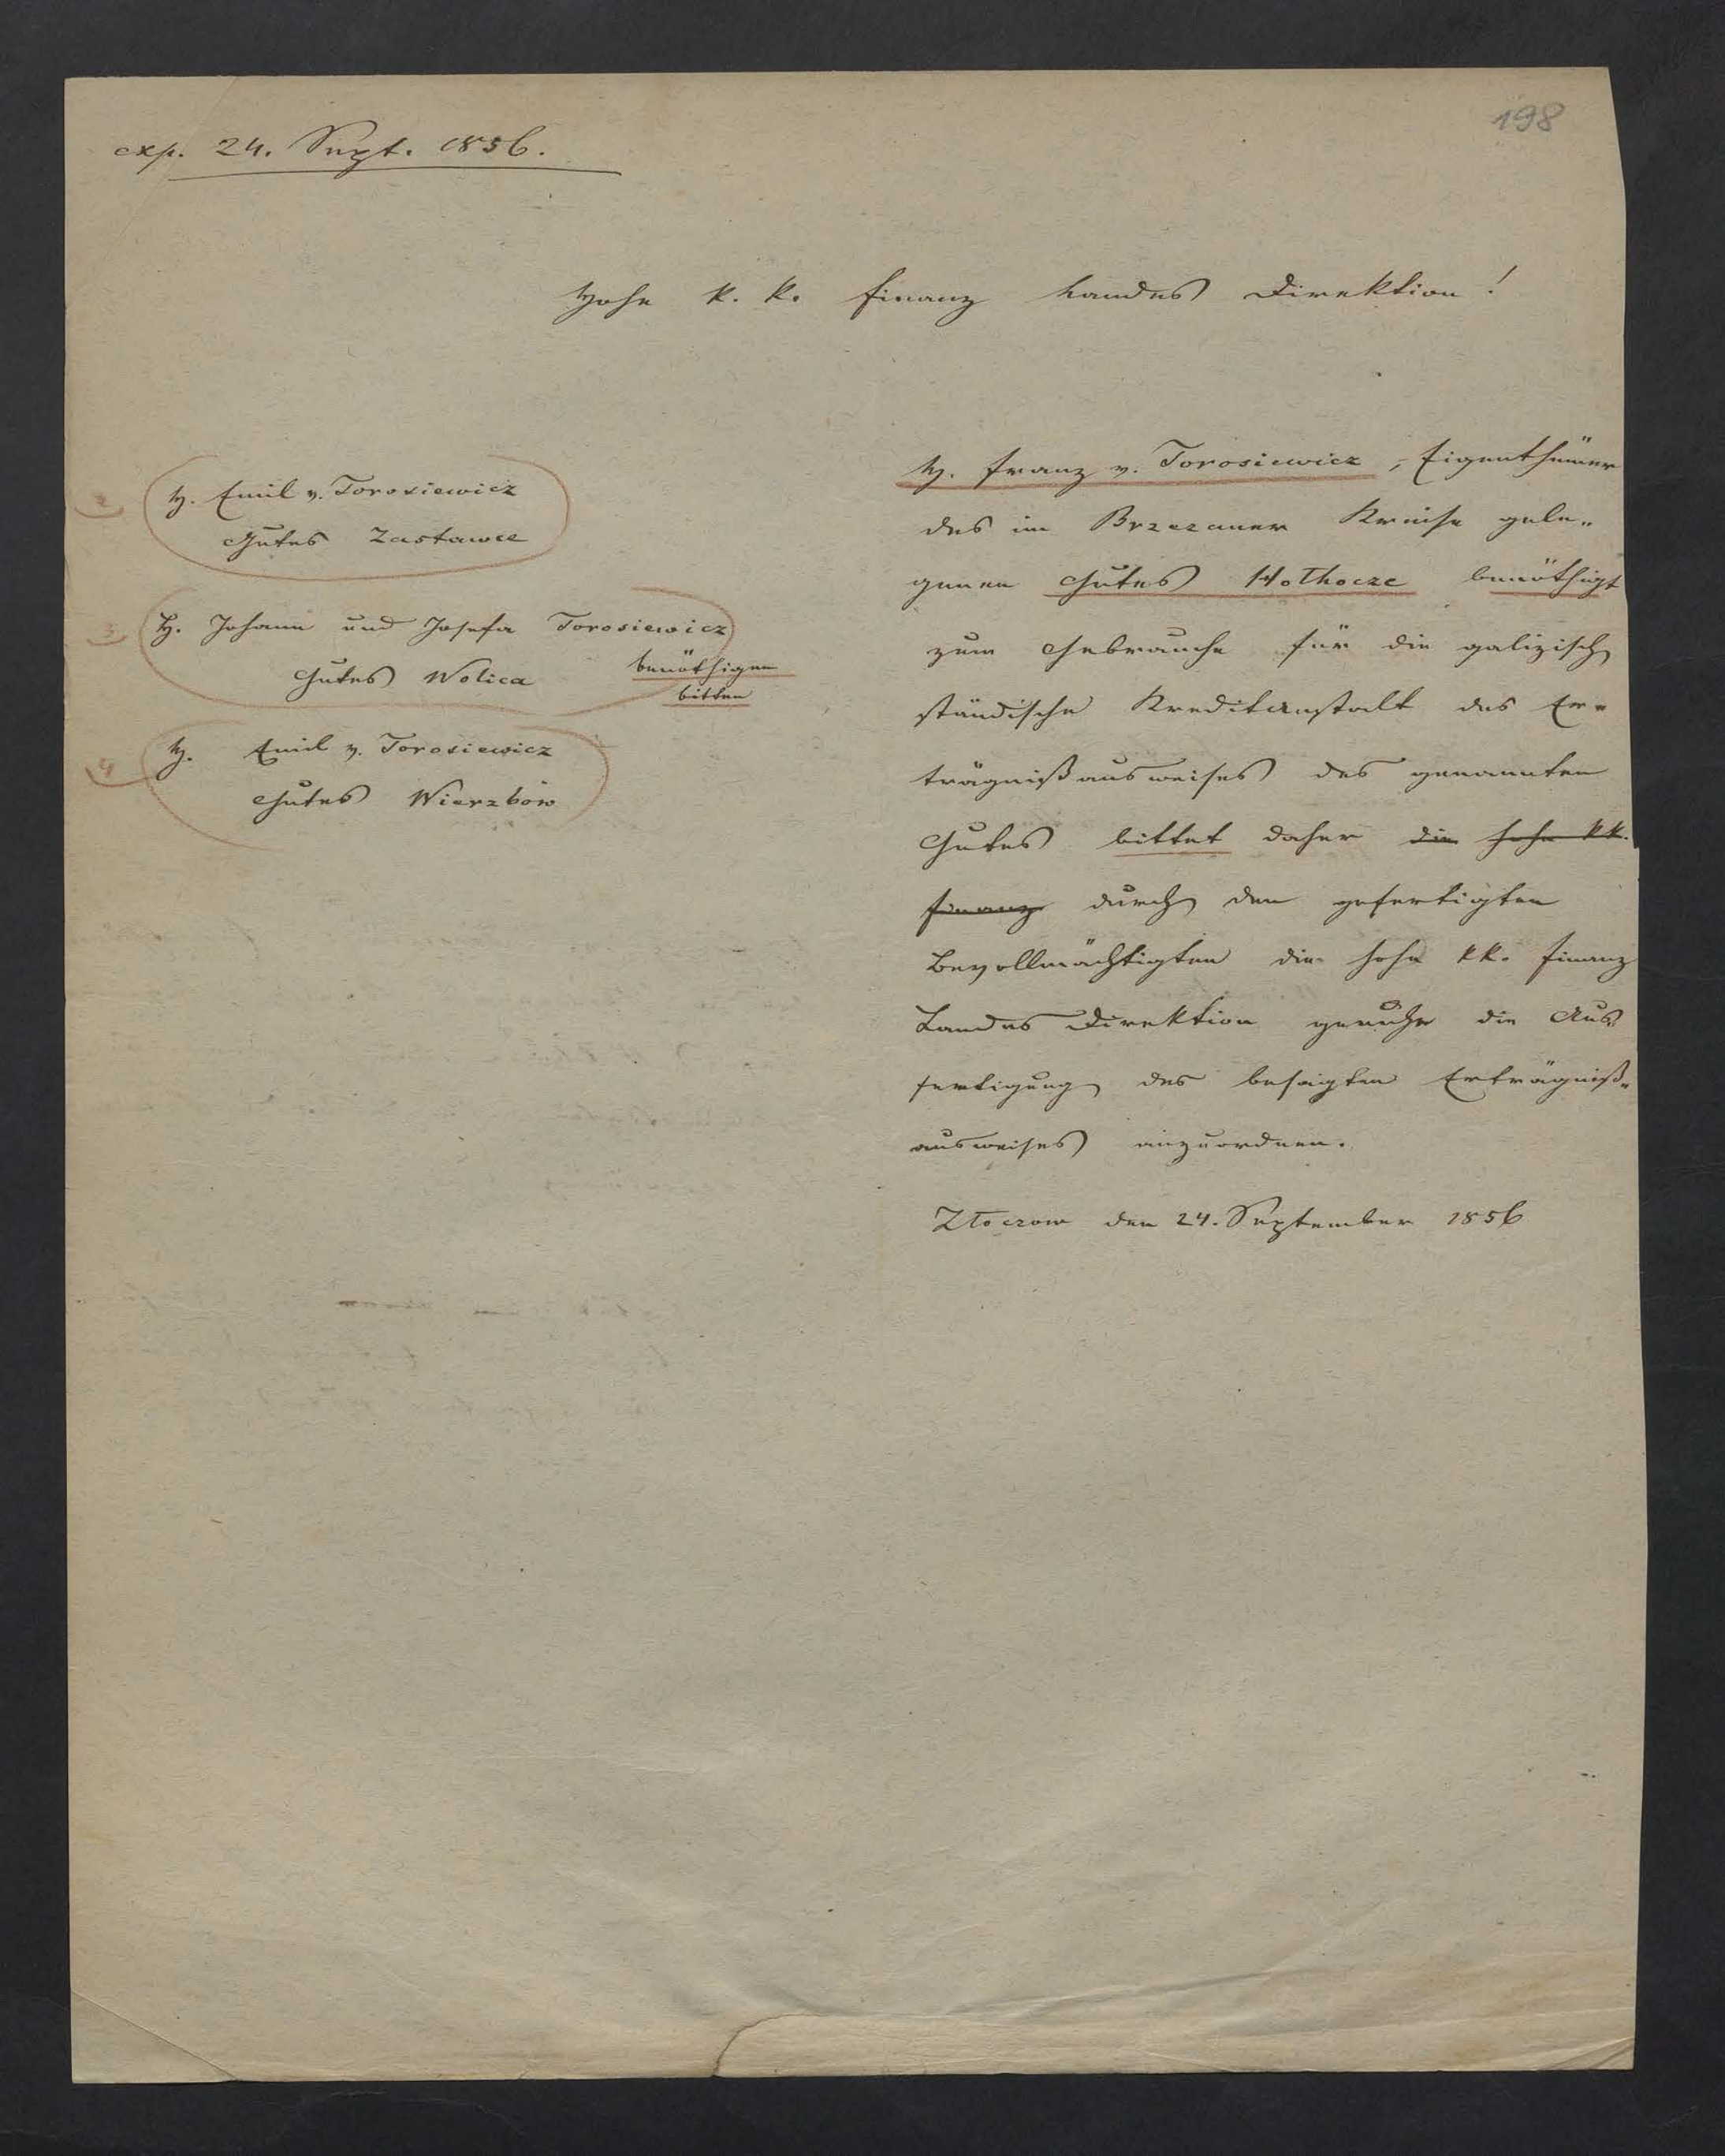 198
exp. 24. Sept. 1856.
Hohe k. k. Finanz Landes Direktion!
2 H. Emil v. Torosiewicz
Gutes Zastawce
3 H. Johann und Josefa Torosiewicz
Gutes Wolica benöthigen
bitten
4 H. Emil v. Torosiewicz
Gutes Wierzbów
H. Franz v. Torosiewicz, Eigenthümer
des im Brzezaner Kreise gele„
genen Gutes Hołhocze benöthigt
zum Gebrauche für die galizisch
ständische Kreditanstalt des Er„
trägnißausweises des genannten
Gutes bittet daher die hohe kk.
Finanz durch den gefertigten
Bevollmächtigten die hohe kk. Finanz
Landes Direktion geruhe die Aus
fertigung des besagten Erträgniß„
ausweises anzuordnen.
Złoczow den 24. September 1856